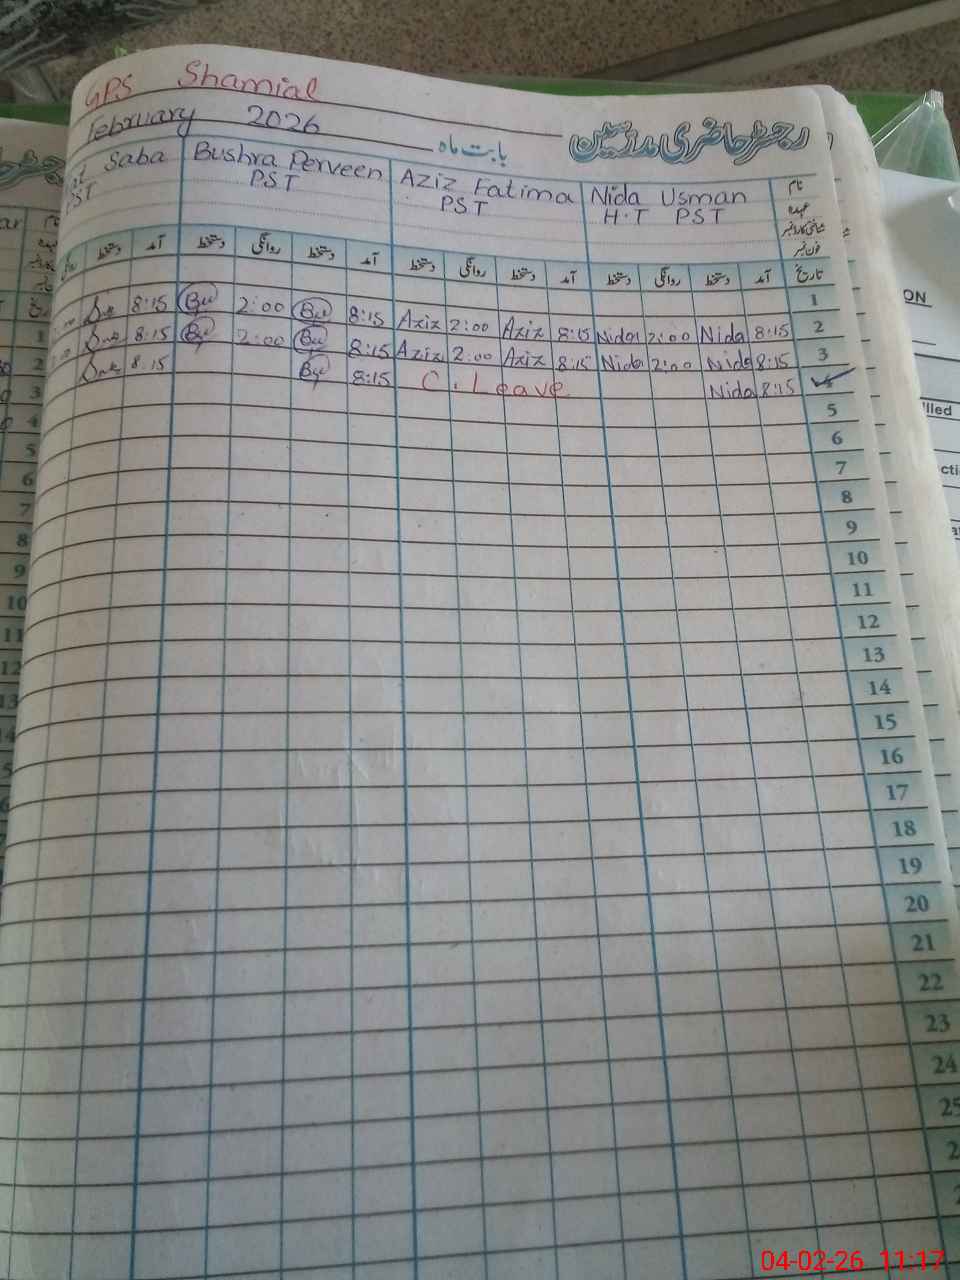 GPS Shamial
February 2026
بابت ماہ
رجسٹر حاضری مدرسین
Saba Bushra Perveen Aziz Fatima Nida Usman نام
PST PST PST H.T PST عہدہ
شناختی کارڈ نمبر
فون نمبر
دستخط آمد دستخط روانگی دستخط آمد دستخط روانگی دستخط آمد دستخط روانگی دستخط آمد تاریخ
1
8:15 2:00 8:15 Aziz 2:00 Aziz 8:15 Nida 2:00 Nida 8:15 2
8:15 2:00 8:15 Aziz 2:00 Aziz 8:15 Nida 2:00 Nida 8:15 3
8:15 8:15 C. Leave Nida 8:15
5
6
7
8
9
10
11
12
13
14
15
16
17
18
19
20
21
22
23
24
25
04-02-26 11:17